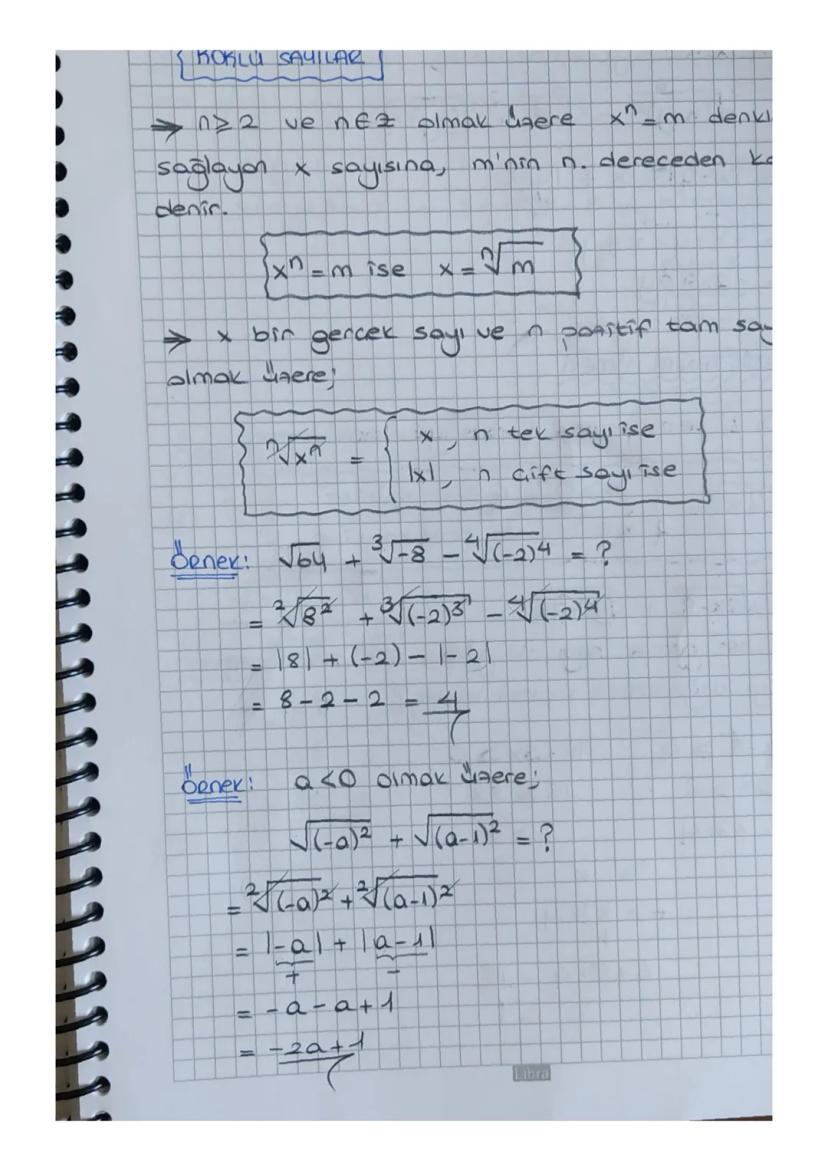 KÖKLÜ SAYILAR
→ n≥2 ve n∈Z olmak üzere xⁿ=m
sağlayan x sayısına, m'nin n. dereceden
denir.
xⁿ=m ise x=ⁿ√m
→ x bir gerçek sayı ve n pozitif tam
olmak üzere;
ⁿ√xⁿ = { x, n tek sayı ise
|x|, n çift sayı ise
Örnek: √64 + ³√-8 - ⁴√(-2)⁴ = ?
= ²√8² + ³√(-2)³ - ⁴√(-2)⁴
= |8| + (-2) - |-2|
= 8 - 2 - 2 = 4
Örnek: a<0 olmak üzere;
√(-a)² + √(a-1)² = ?
= ²√(-a)² + ²√(a-1)²
= |-a| + |a-1|
+ -
= -a - a + 1
= -2a+1
Libra